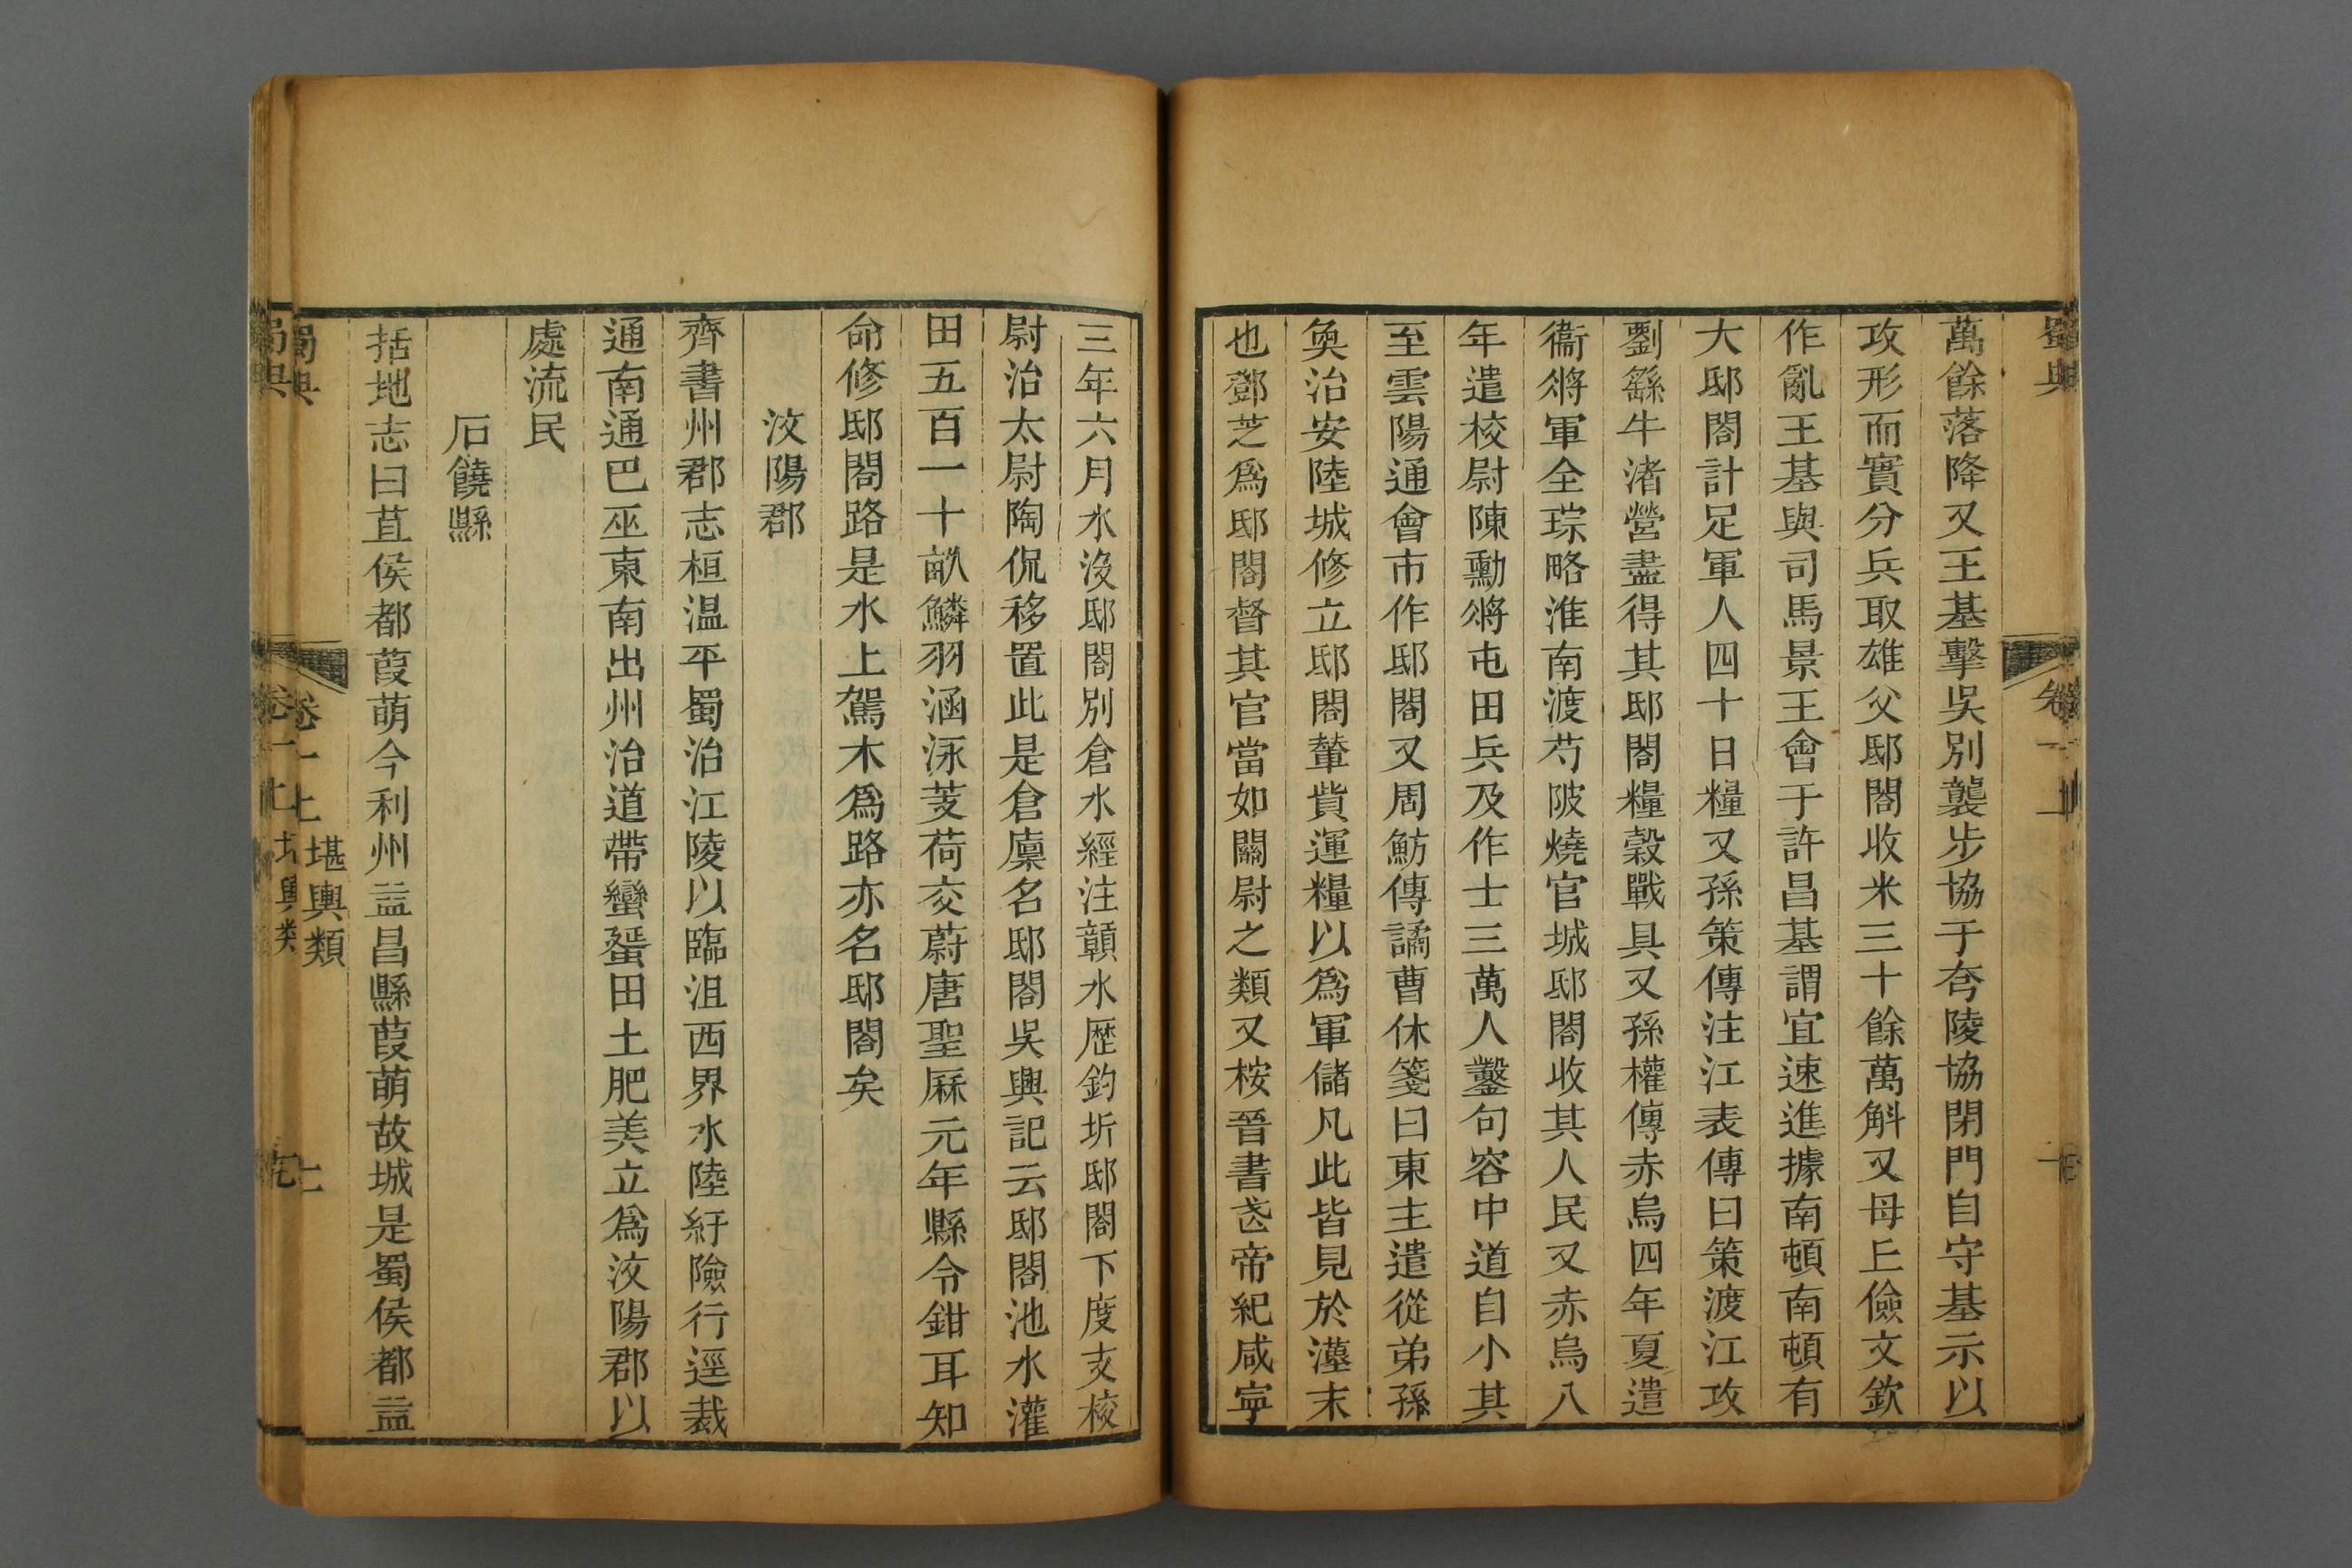 萬餘落降又王基擊吳別襲步協于夸陵協閉門自守基示以
攻形而實分兵取雄父邸閣收米三十餘萬斛又母丘儉文欽
作亂王基與司馬景王會于許昌基謂宜速進據南頓南頓有
大邸閣計足軍人四十日糧又孫策傳注江表傳曰策渡江攻
劉繇牛渚營盡得其邸閣糧穀戰具又孫權傳赤烏四年夏遣
衞將軍全琮略淮南渡芍陂燒官城邸閣收其人民又赤烏八
年遣校尉陳勳將屯田兵及作士三萬人鑿句容中道自小其
至雲陽通會市作邸閣又周魴傳譎曹休箋曰東主遣從弟孫
奐治安陸城修立邸閣輦貲運糧以爲軍儲凡此皆見於漢末
也鄧芝爲邸閣督其官當如關尉之類又桉晉書武帝紀咸寜
三年六月水沒邸閣別倉水經注贑水歷鈞圻邸閣下度支校
尉治太尉陶侃移置此是倉廩名邸閣吳興記云邸閣池水灌
田五百一十畝鱗羽涵泳芰荷交蔚唐聖厤元年縣令鉗耳知
命修邸閣路是水上駕木爲路亦名邸閣矣
汶陽郡
齊書州郡志桓温平蜀治江陵以臨沮西界水陸紆險行逕裁
通南通巴巫東南出州治道帶蠻蜑田土肥美立爲汶陽郡以
處流民
石饒縣
括地志曰苴侯都葭萌今利州益昌縣葭萌故城是蜀侯都益
蜀典
卷一上
堪輿類